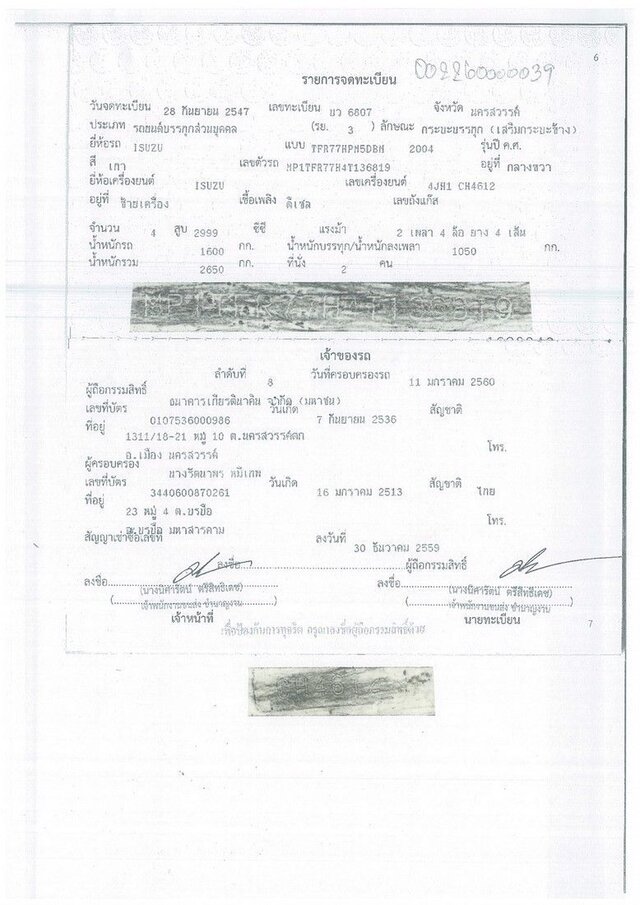 6
00226000039
รายการจดทะเบียน
วันจดทะเบียน 28 กันยายน 2547 เลขทะเบียน บว 6807 จังหวัด นครสวรรค์
ประเภท รถยนต์บรรทุกส่วนบุคคล (รย. 3 ) ลักษณะ กระบะบรรทุก (เสริมกระบะข้าง)
ยี่ห้อรถ ISUZU แบบ TFR77HPM5DBM 2004 รุ่นปี ค.ศ.
สี เทา เลขตัวรถ MP1TFR77H4T136819 อยู่ที่ กลางขวา
ยี่ห้อเครื่องยนต์ ISUZU เลขเครื่องยนต์ 4JH1 CH4612
อยู่ที่ ซ้ายเครื่อง เชื้อเพลิง ดีเซล เลขถังแก๊ส
จำนวน 4 สูบ 2999 ซีซี แรงม้า 2 เพลา 4 ล้อ ยาง 4 เส้น
น้ำหนักรถ 1600 กก. น้ำหนักบรรทุก/น้ำหนักลงเพลา 1050 กก.
น้ำหนักรวม 2650 กก. ที่นั่ง 2 คน
เจ้าของรถ
ลำดับที่ 8 วันที่ครอบครองรถ 11 มกราคม 2560
ผู้ถือกรรมสิทธิ์ ธนาคารเกียรตินาคิน จำกัด (มหาชน)
เลขที่บัตร 0107536000986 วันเกิด 7 กันยายน 2536 สัญชาติ
ที่อยู่ 1311/18-21 หมู่ 10 ต.นครสวรรค์ตก
อ.เมือง นครสวรรค์ โทร.
ผู้ครอบครอง นางรัตนาพร หมี่เทพ
เลขที่บัตร 3440600870261 วันเกิด 16 มกราคม 2513 สัญชาติ ไทย
ที่อยู่ 23 หมู่ 4 ต.บรบือ
อ.บรบือ มหาสารคาม โทร.
สัญญาเช่าซื้อเลขที่ ลงวันที่ 30 ธันวาคม 2559
ลงชื่อ ผู้ถือกรรมสิทธิ์
ลงชื่อ ลงชื่อ
(นางนิศารัตน์ ศรีสิทธิเดช) (นางนิศารัตน์ ศรีสิทธิเดช)
เจ้าพนักงานขนส่ง ชำนาญงาน เจ้าพนักงานขนส่ง ชำนาญงาน
เจ้าหน้าที่ นายทะเบียน
เพื่อป้องกันการทุจริต กรุณาลงชื่อผู้ถือกรรมสิทธิ์ด้วย
7